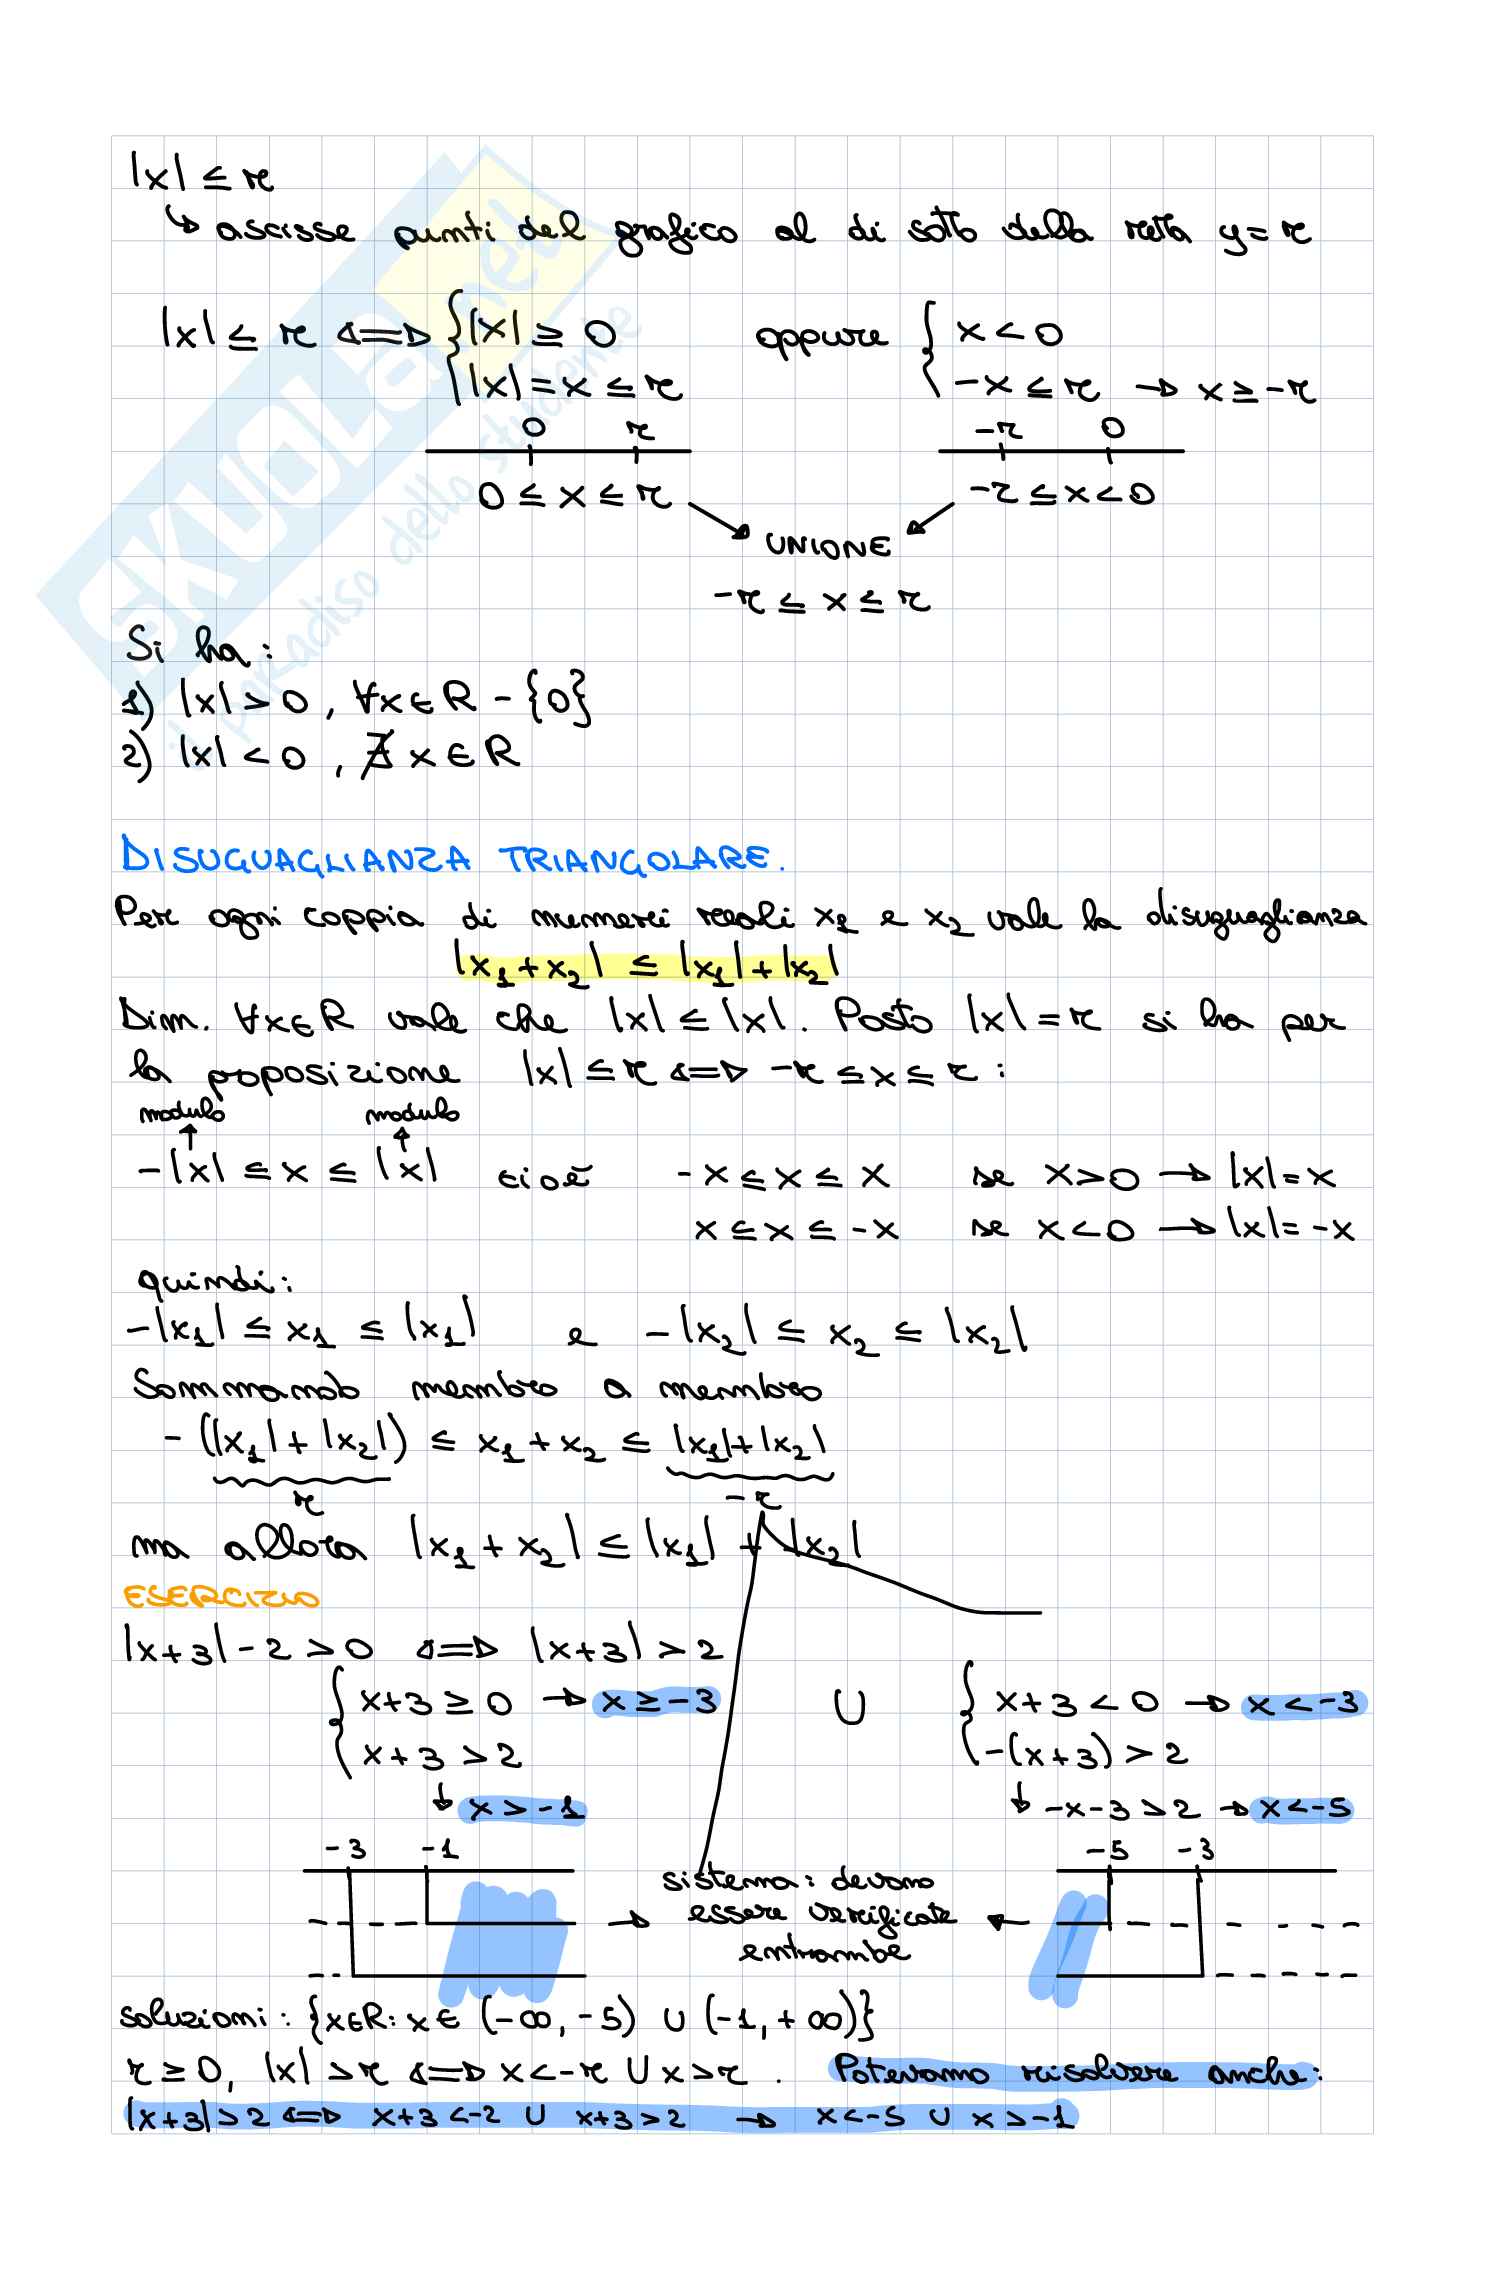 |x| ≤ r
↳ ascisse punti del grafico al di sotto della retta y = r
|x| ≤ r ⟺ { |x| ≥ 0 oppure { x < 0
|x| = x ≤ r -x ≤ r → x ≥ -r
0 r -r 0
0 ≤ x ≤ r -r ≤ x < 0
UNIONE
-r ≤ x ≤ r
Si ha:
1) |x| > 0, ∀x ∈ R - {0}
2) |x| < 0, ∄ x ∈ R
DISUGUAGLIANZA TRIANGOLARE.
Per ogni coppia di numeri reali x1 e x2 vale la disuguaglianza
|x1 + x2| ≤ |x1| + |x2|
Dim. ∀x∈R vale che |x| ≤ |x|. Posto |x| = r si ha per
la proposizione |x| ≤ r ⟺ -r ≤ x ≤ r:
modulo modulo
-|x| ≤ x ≤ |x| cioè -x ≤ x ≤ x se x > 0 → |x| = x
x ≤ x ≤ -x se x < 0 → |x| = -x
quindi:
-|x1| ≤ x1 ≤ |x1| e -|x2| ≤ x2 ≤ |x2|
Sommando membro a membro
-(|x1| + |x2|) ≤ x1 + x2 ≤ |x1| + |x2|
r -r
ma allora |x1 + x2| ≤ |x1| + |x2|
ESERCIZIO
|x+3| - 2 > 0 ⟺ |x+3| > 2
{ x+3 ≥ 0 → x ≥ -3 ∪ { x+3 < 0 → x < -3
x+3 > 2 -(x+3) > 2
↓ x > -1 ↓ -x-3 > 2 → x < -5
-3 -1 -5 -3
sistema: devono
→ essere verificate ←
entrambe
soluzioni: {x∈R: x ∈ (-∞, -5) ∪ (-1, +∞)}
r ≥ 0, |x| > r ⟺ x < -r ∪ x > r. Potevamo risolvere anche:
|x+3| > 2 ⟺ x+3 < -2 ∪ x+3 > 2 → x < -5 ∪ x > -1
SKUOLA.net
il paradiso dello studente